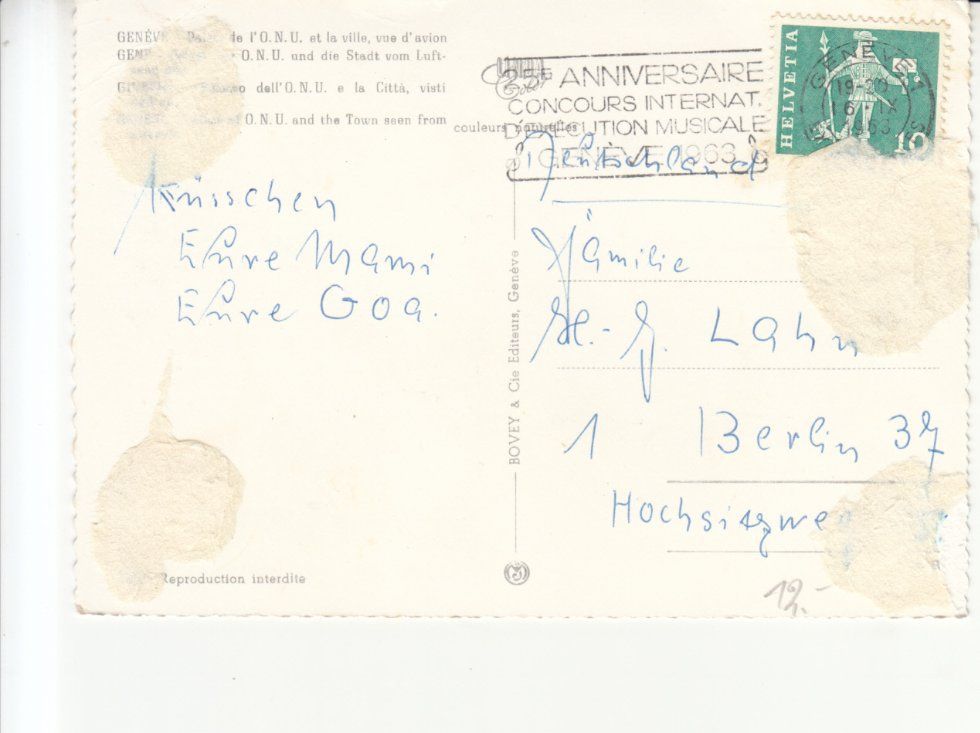 GENÈVE de l'O.N.U. et la ville, vue d'avion
O.N.U. und die Stadt vom Luft-
dell'O.N.U. e la Città, visti
O.N.U. and the Town seen from
couleurs naturelles
25E ANNIVERSAIRE
CONCOURS INTERNAT.
D'EXÉCUTION MUSICALE
GENÈVE 1963
HELVETIA
10
GENÈVE 1
19-20
1963
Küsschen
Eure Mami
Eure Goa.
BOVEY & Cie Editeurs, Genève
Deutschland
Familie
H.-J. Lahn
1 Berlin 37
Reproduction interdite
12.-